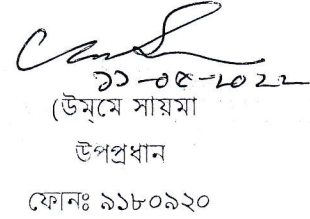 ১১-০৫-২০২২
(উম্মে সায়মা
উপপ্রধান
ফোনঃ ৯১৮০৯২০